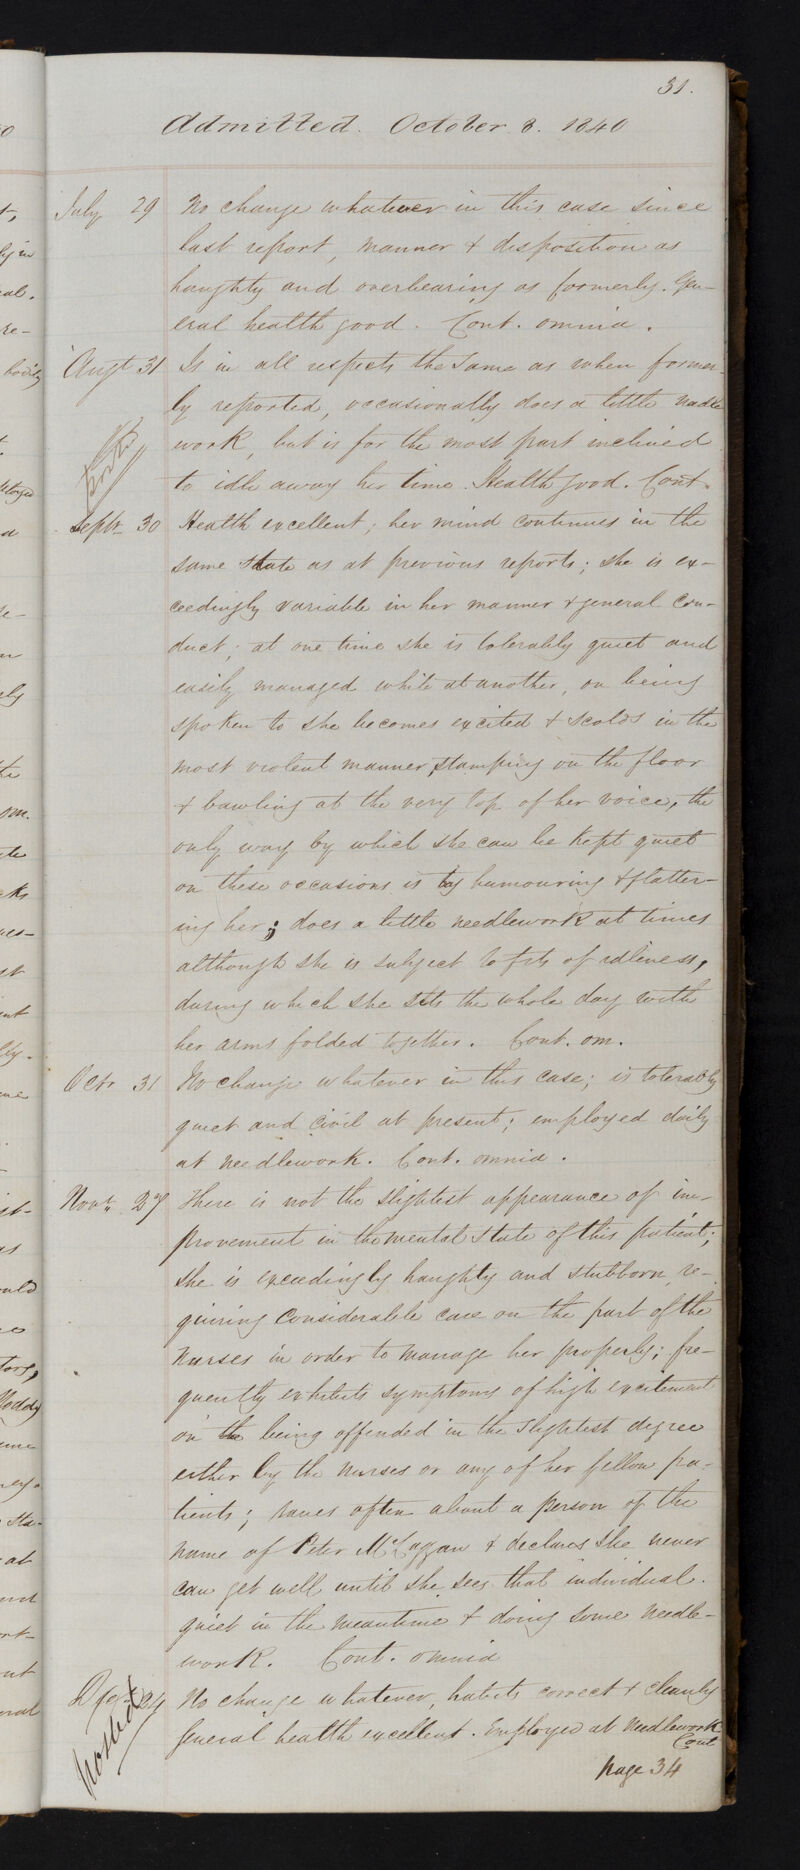 31.
Admitted. October 8. 1840
July 29 No change whatever in this case since
last report, manner & disposition as
haughty and overbearing as formerly. Gen-
eral health good. Cont. omnia.
Augt 31 Is in all respects the same as when former-
ly reported, occasionally does a little needle
work, but is for the most part inclined
to idle away her time. Health good. Cont.
Septr 30 Health excellent; her mind continues in the
same state as at previous reports; she is ex-
ceedingly variable in her manner & general con-
duct; at one time she is tolerably quiet and
easily managed while at another, on being
spoken to she becomes excited & scolds in the
most violent manner, stamping on the floor
& bawling at the very top of her voice, the
only way by which she can be kept quiet
on these occasions is by humouring & flatter-
ing her; does a little needlework at times
although she is subject to fits of idleness,
during which she sits the whole day with
her arms folded together. Cont. om.
Octr 31 No change whatever in this case; is tolerably
quiet and civil at present; employed daily
at needlework. Cont. omnia.
Novr 27 There is not the slightest appearance of im-
provement in the mental state of this patient;
she is exceedingly haughty and stubborn, re-
quiring considerable care on the part of the
nurses in order to manage her properly; fre-
quently exhibits symptoms of high excitement
on the being offended in the slightest degree
either by the nurses or any of her fellow pa-
tients; raves often about a person of the
name of Peter McLaggan & declares she never
can get well until she sees that individual.
quiet in the meantime & doing some needle-
work. Cont. omnia
Decr 24 No change whatever, habits correct & cleanly
General health excellent. Employed at needlework
Cont
Posted
page 34